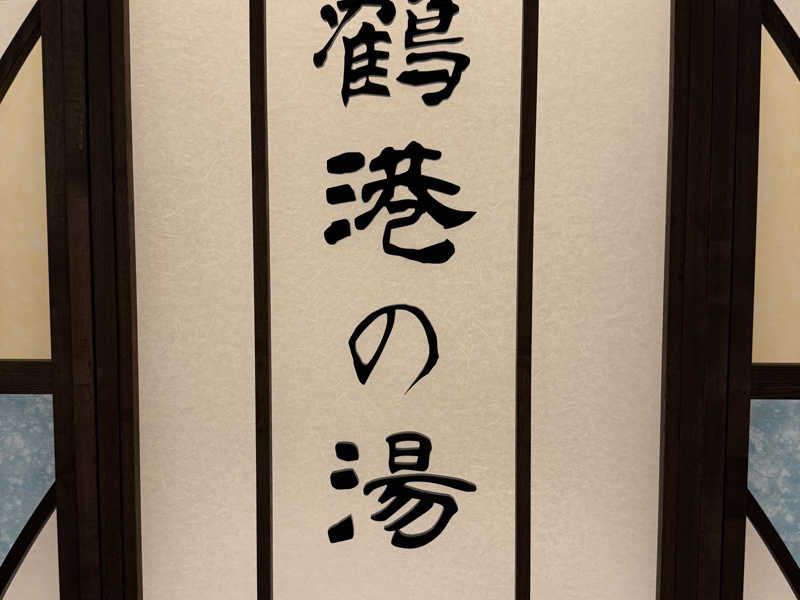 鶴港の湯